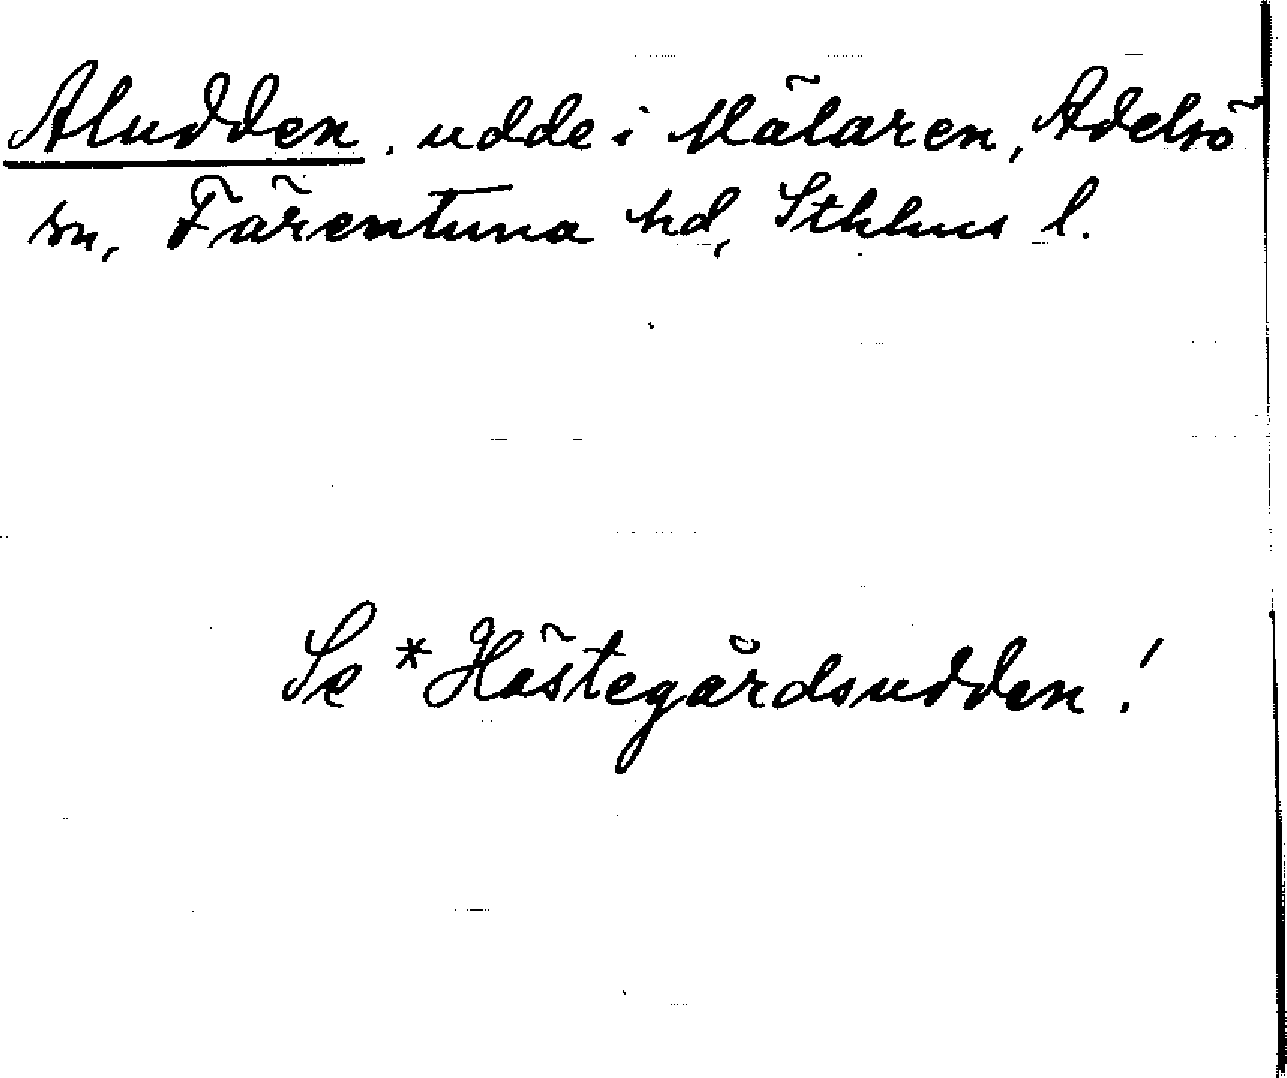 Aludden, udde i Mälaren, Adelsö
sn, Färentuna hd, Sthlms l.
Se *Hästegårdsudden!